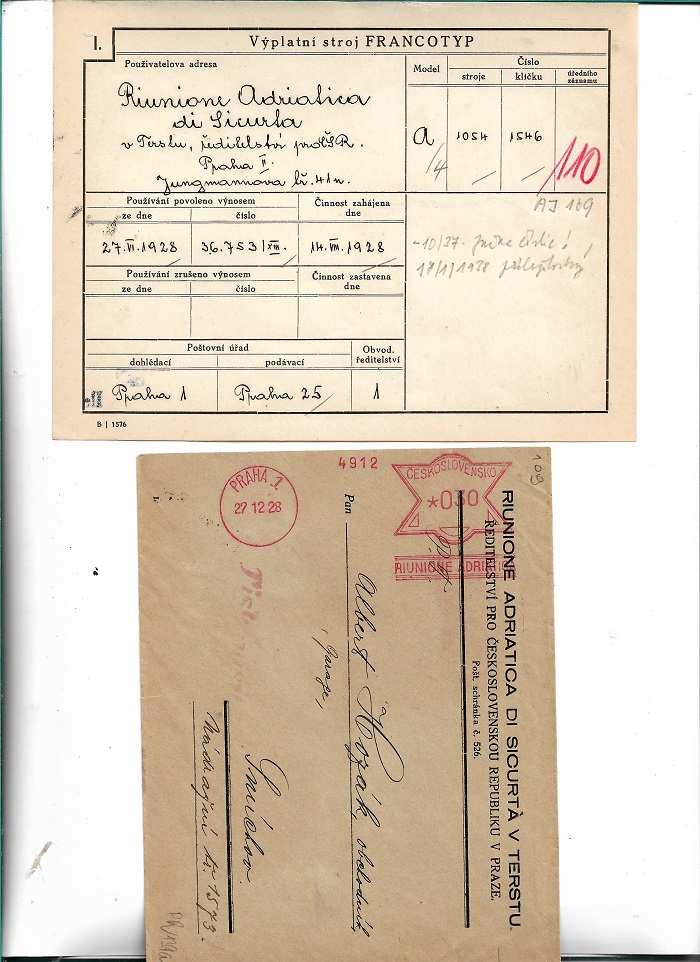 I.
Výplatní stroj FRANCOTYP
Používatelova adresa
Riunione Adriatica
di Sicurta
v Terstu, ředitelství pro ČSR.
Praha II.
Jungmannova tř. 41n.
Model
Číslo
stroje
klíčku
úředního záznamu
A/4
1054
1546
110
AJ 109
Používání povoleno výnosem
ze dne
číslo
Činnost zahájena dne
27.VI.1928
36.753/XIII.
14.VII.1928
-10/37.
17/1/1938
Používání zrušeno výnosem
ze dne
číslo
Činnost zastavena dne
Poštovní úřad
dohlédací
podávací
Obvod. ředitelství
Praha 1
Praha 25
1
B | 1576
PRAHA 1
27 12 28
4912
ČESKOSLOVENSKO
*030
RIUNIONE ADRIATIC
109
RIUNIONE ADRIATICA DI SICURTÀ V TERSTU.
ŘEDITELSTVÍ PRO ČESKOSLOVENSKOU REPUBLIKU V PRAZE.
Pošt. schránka č. 526.
Pan
Albert Hozák, obchodník,
Garage,
Smíchov.
Nádražní tř. 1573.